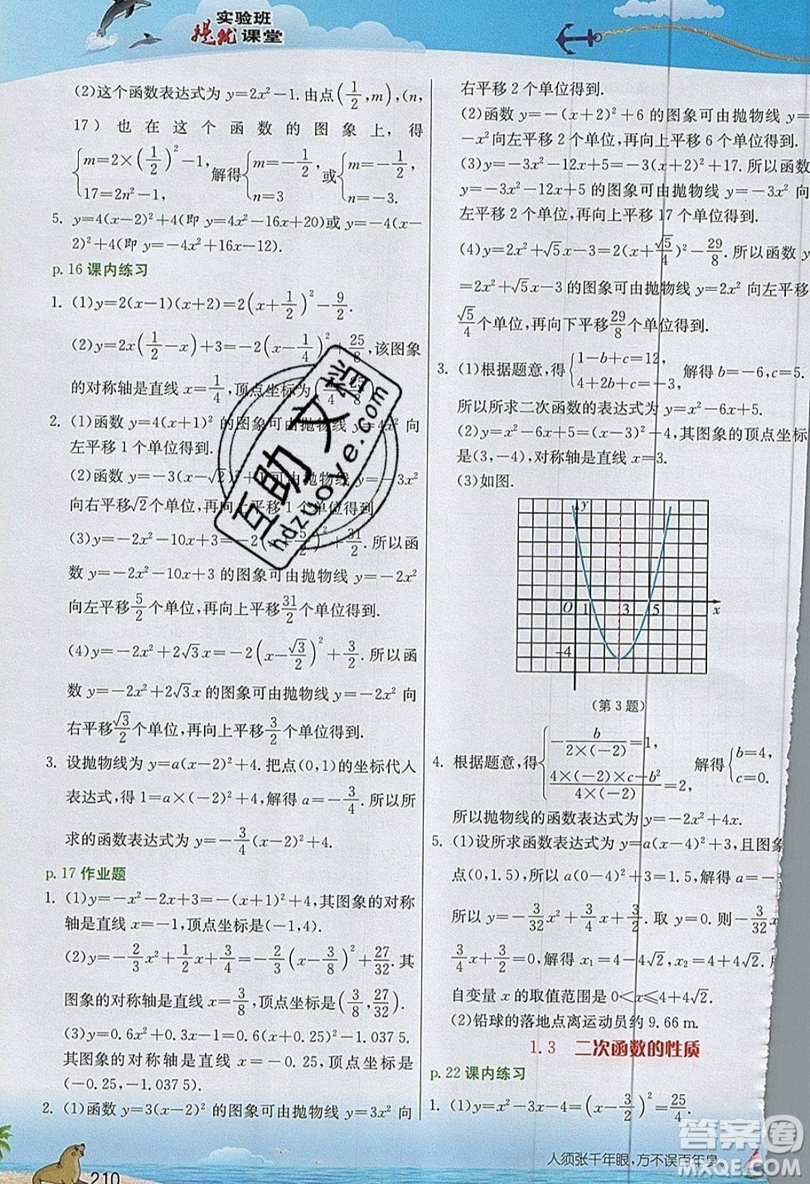 实验班
提优课堂
(2)这个函数表达式为 y=2x²-1. 由点(1/2,m),(n,
17)也在这个函数的图象上,得
{m=2×(1/2)²-1, 17=2n²-1, 解得{m=-1/2, n=3 或{m=-1/2, n=-3.
5. y=4(x-2)²+4(即 y=4x²-16x+20)或 y=-4(x-
2)²+4(即 y=-4x²+16x-12).
p.16 课内练习
1. (1)y=2(x-1)(x+2)=2(x+1/2)²-9/2.
(2)y=2x(1/2-x)+3=-2(x-1/4)²+25/8,该图象
的对称轴是直线 x=1/4,顶点坐标为
2. (1)函数 y=4(x+1)² 的图象可由抛物线 y=4x² 向
左平移 1 个单位得到.
(2)函数 y=-3(x-√2)²+1 的图象可由抛物线
向右平移√2个单位,再向上平移 1 个单位得到.
(3)y=-2x²-10x+3=-2(x+5/2)²+31/2. 所以函
数 y=-2x²-10x+3 的图象可由抛物线 y=-2x²
向左平移5/2个单位,再向上平移31/2个单位得到.
(4)y=-2x²+2√3x=-2(x-√3/2)²+3/2. 所以函
数 y=-2x²+2√3x 的图象可由抛物线 y=-2x² 向
右平移√3/2个单位,再向上平移3/2个单位得到.
3. 设抛物线为 y=a(x-2)²+4. 把点(0,1)的坐标代入
表达式,得 1=a×(-2)²+4, 解得 a=-3/4. 所以所
求的函数表达式为 y=-3/4(x-2)²+4.
p.17 作业题
1. (1)y=-x²-2x+3=-(x+1)²+4,其图象的对称
轴是直线 x=-1,顶点坐标是(-1,4).
(2)y=-2/3x²+1/2x+3/4=-2/3(x-3/8)²+27/32. 其
图象的对称轴是直线 x=3/8,顶点坐标是(3/8,27/32).
(3)y=0.6x²+0.3x-1=0.6(x+0.25)²-1.037 5.
其图象的对称轴是直线 x=-0.25,顶点坐标是
(-0.25,-1.037 5).
2. (1)函数 y=3(x-2)² 的图象可由抛物线 y=3x² 向
210
右平移 2 个单位得到.
(2)函数 y=-(x+2)²+6 的图象可由抛物线 y=
-x² 向左平移 2 个单位,再向上平移 6 个单位得到.
(3)y=-3x²-12x+5=-3(x+2)²+17. 所以函数
y=-3x²-12x+5 的图象可由抛物线 y=-3x² 向
左平移 2 个单位,再向上平移 17 个单位得到.
(4)y=2x²+√5x-3=2(x+√5/4)²-29/8. 所以函数
y=2x²+√5x-3 的图象可由抛物线 y=2x² 向左平移
√5/4个单位,再向下平移29/8个单位得到.
3. (1)根据题意,得{1-b+c=12, 4+2b+c=-3, 解得 b=-6,c=5.
所以所求二次函数的表达式为 y=x²-6x+5.
(2)y=x²-6x+5=(x-3)²-4,其图象的顶点坐标
是(3,-4),对称轴为 x=3.
(3)如图.
y
O 1 3 5 x
-4
(第 3 题)
4. 根据题意,得{-b/(2×(-2))=1, (4×(-2)×c-b²)/(4×(-2))=2, 解得{b=4, c=0.
所以抛物线的函数表达式为 y=-2x²+4x.
5. (1)设所求函数表达式为 y=a(x-4)²+3,且图象过
点(0,1.5),所以 1.5=a(0-4)²+3,解得 a=-3/32.
所以 y=-3/32x²+3/4x+3/2. 取 y=0,则 -3/32x²+3/4x+
1.5=0,解得 x₁=4-4√2, x₂=4+4√2. 所以
自变量 x 的取值范围是 0<x≤4+4√2.
(2)铅球的落地点离运动员约 9.66 m.
1.3 二次函数的性质
p.22 课内练习
1. (1)y=x²-3x-4=(x-3/2)²-25/4.
人须张千年眼,方不误百年身
互助文档
hdzuoye.com
答案圈
MXQE.COM